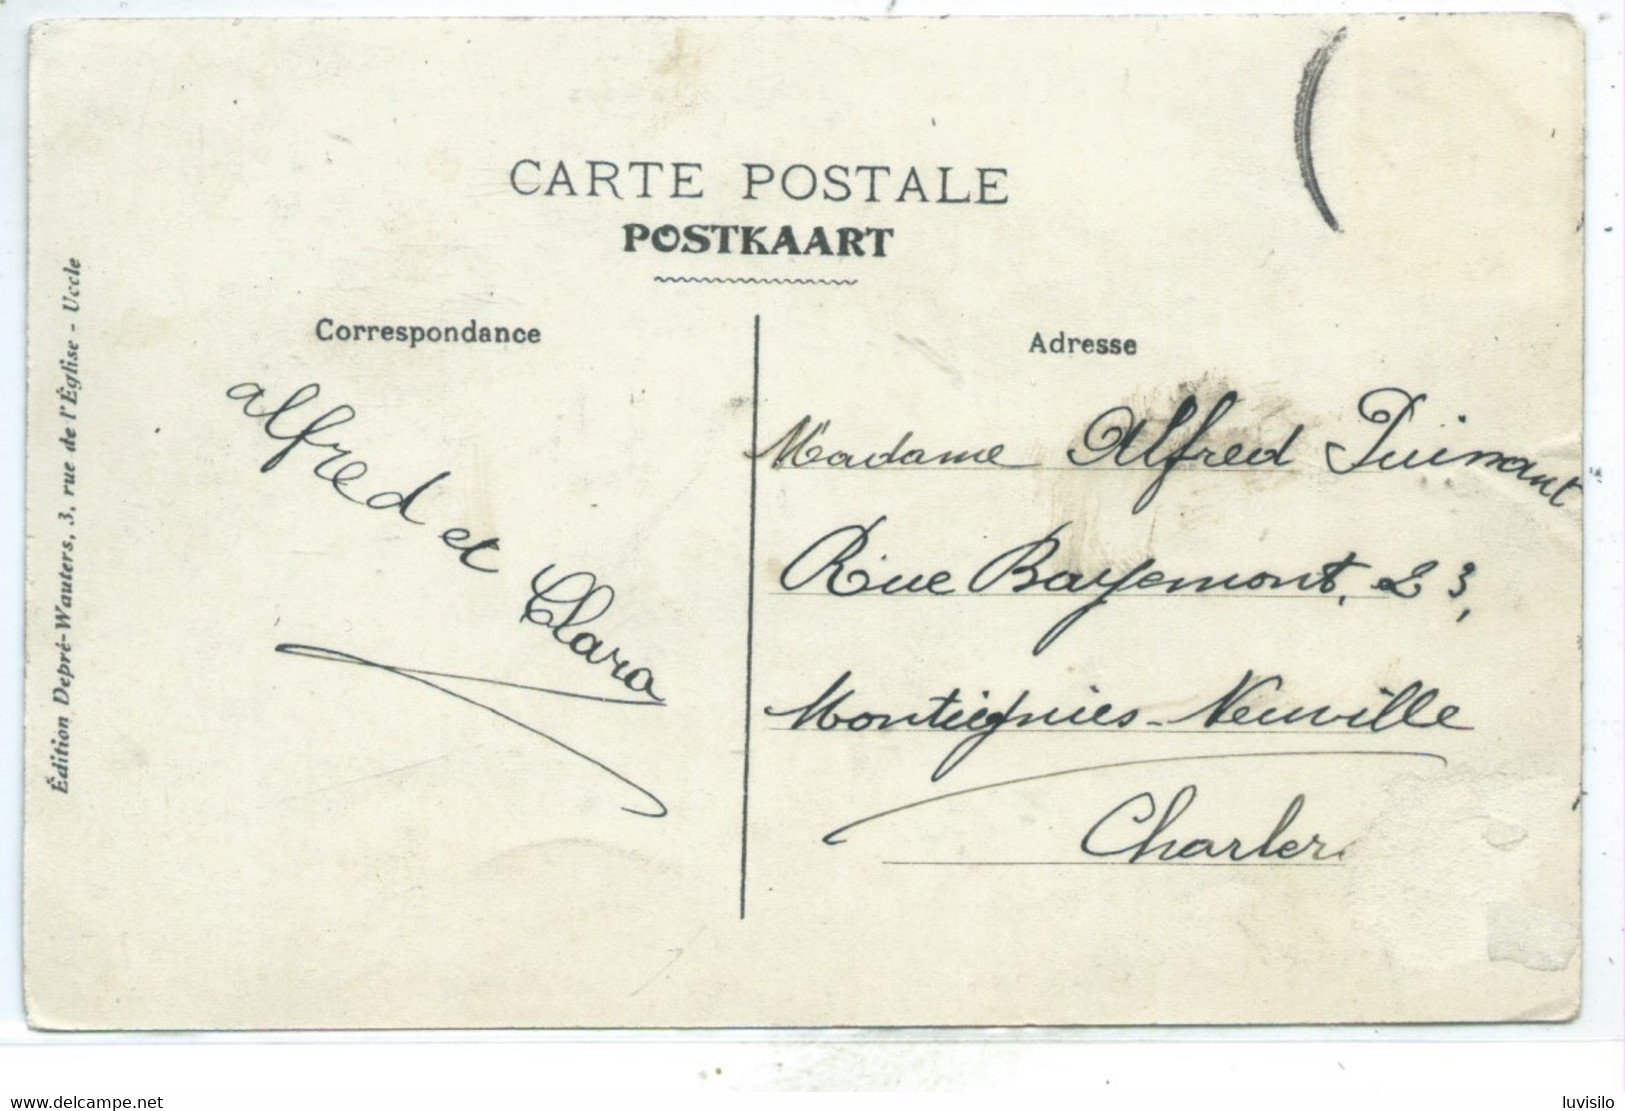 CARTE POSTALE
POSTKAART
Correspondance
Adresse
Édition Depré-Wauters, 3, rue de l'Église - Uccle
alfred et Clara
Madame Alfred Puissant
Rue Bayemont, 23,
Montignies-Neuville
Charler
www.delcampe.net
luvisilo